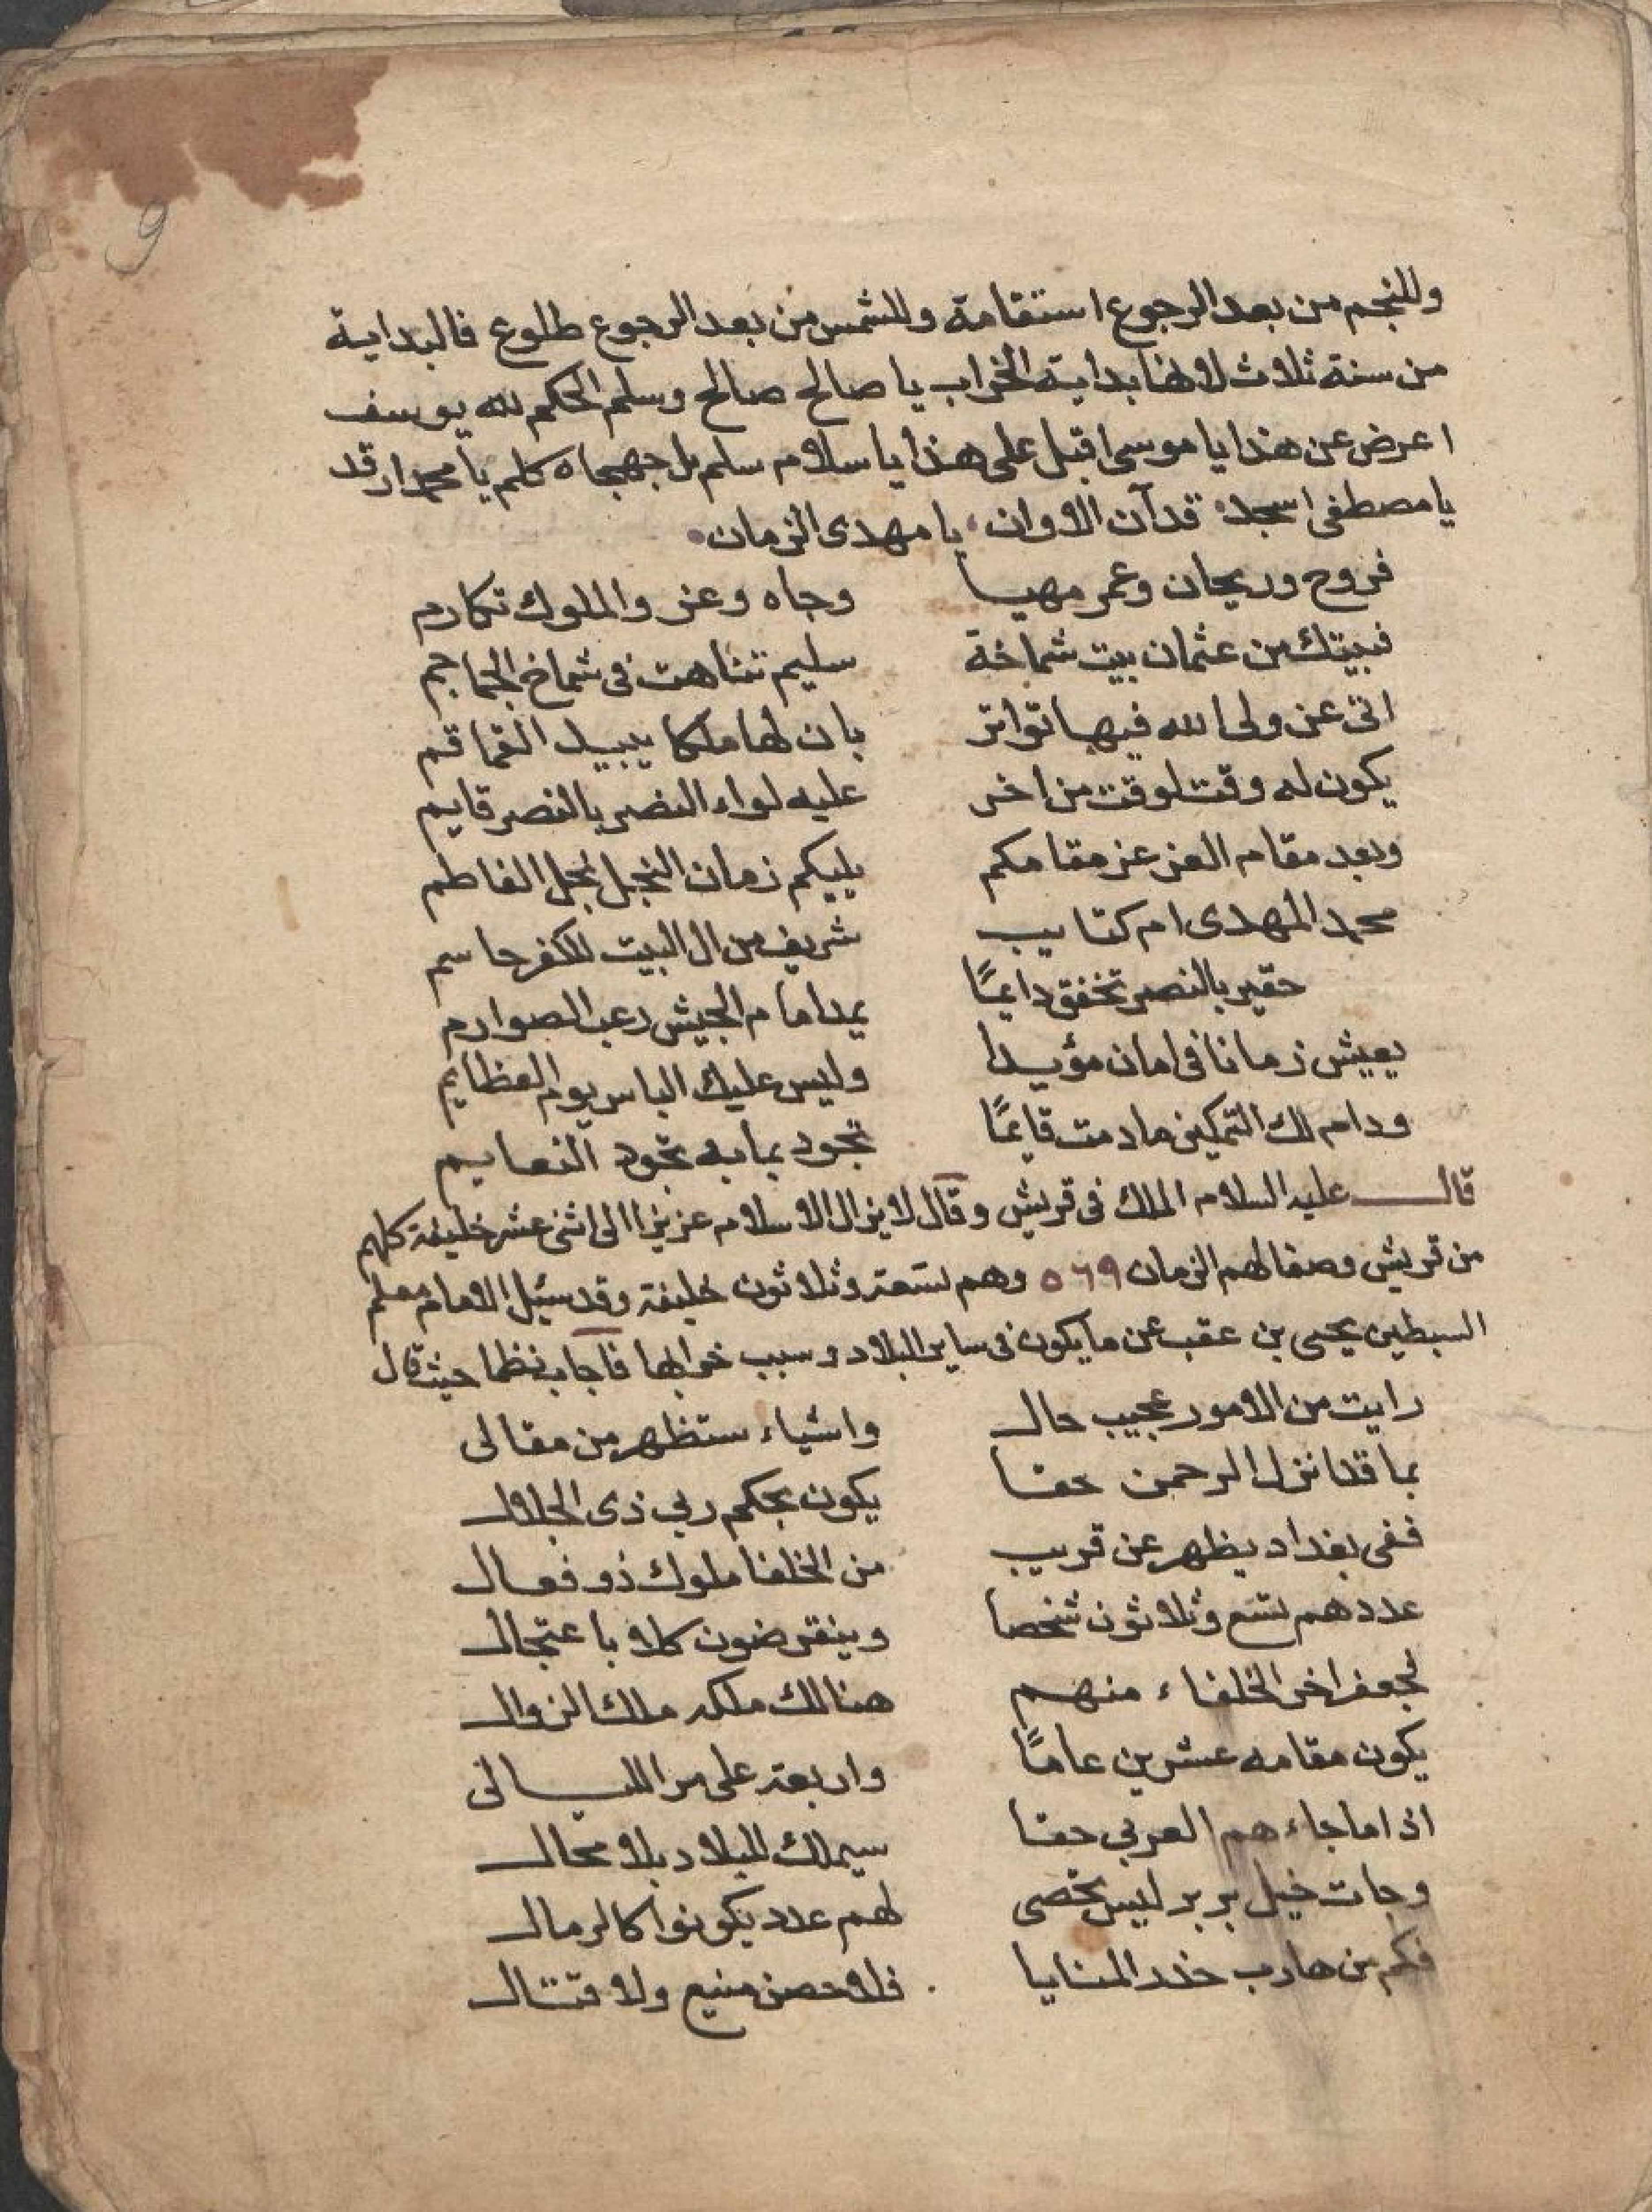 9
وللنجم من بعد الرجوع استقامة وللشمس من بعد الرجوع طلوع فالبداية
من سنة ثلاث لانها بداية الخراب يا صالح صالح وسلم الحكم لله يوسف
اعرض عن هذا يا موسى اقبل على هذا يا سلام سلم بل جهجاه كلم يا محمد ارقد
يا مصطفى اسجد قد آن الاوان يا مهدى الزمان
فروح وريحان وعمر مهيا وجاه وعز والملوك تكارم
فبيتك من عثمان بيت شماخة سليم تناهت فى شماخ الجماجم
اتى عن ولى الله فيها تواتر بان لها ملكا يبيد القماقم
يكون له وقت لوقت من اخر عليه لواء النصر بالنصر قايم
وبعد مقام العز عز مقامكم يليكم زمان النجل نجل الفاطم
محمد المهدى ام كتايب شريف من ال البيت للكفر حاسم
حقير بالنصر تخفق دايمًا يمد امام الجيش رعب الصوارم
يعيش زمانا فى امان مؤيدا وليس عليك الباس يوم العظايم
ودام لك التمكين ما دمت قايمًا تجود بما به تجود النعايم
قال عليه السلام الملك فى قريش وقال لا يزال الاسلام عزيزا الى اثنى عشر خليفة كلهم
من قريش وصفا لهم الزمان ٥٦٩ وهم تسعة وثلاثون خليفة وقد سئل الامام معلم
السبطين يحيى بن عقب عن ما يكون فى ساير البلاد وسبب خرابها فاجاب نظما حيث قال
رايت من الامور عجيب حال واشياء ستظهر من مقالى
بما قد انزل الرحمن حقا يكون بحكم ربي ذى الجلال
ففى بغداد يظهر عن قريب من الخلفا ملوك ذو فعال
عددهم تسع وثلاثون شخصا وينقرضون كلا باعتجال
لجعفر اخر الخلفاء منهم هنالك ملكه ملك الزوال
يكون مقامه عشرين عامًا واربعة على مر الليالى
اذا ما جاءهم العربي حقا سيملك للبلاد بلا محال
وجات خيل بربر ليس تحصى لهم عدد يكونوا كالرمال
فكم من هارب حذر المنايا فلا حصن منيع ولا قتال